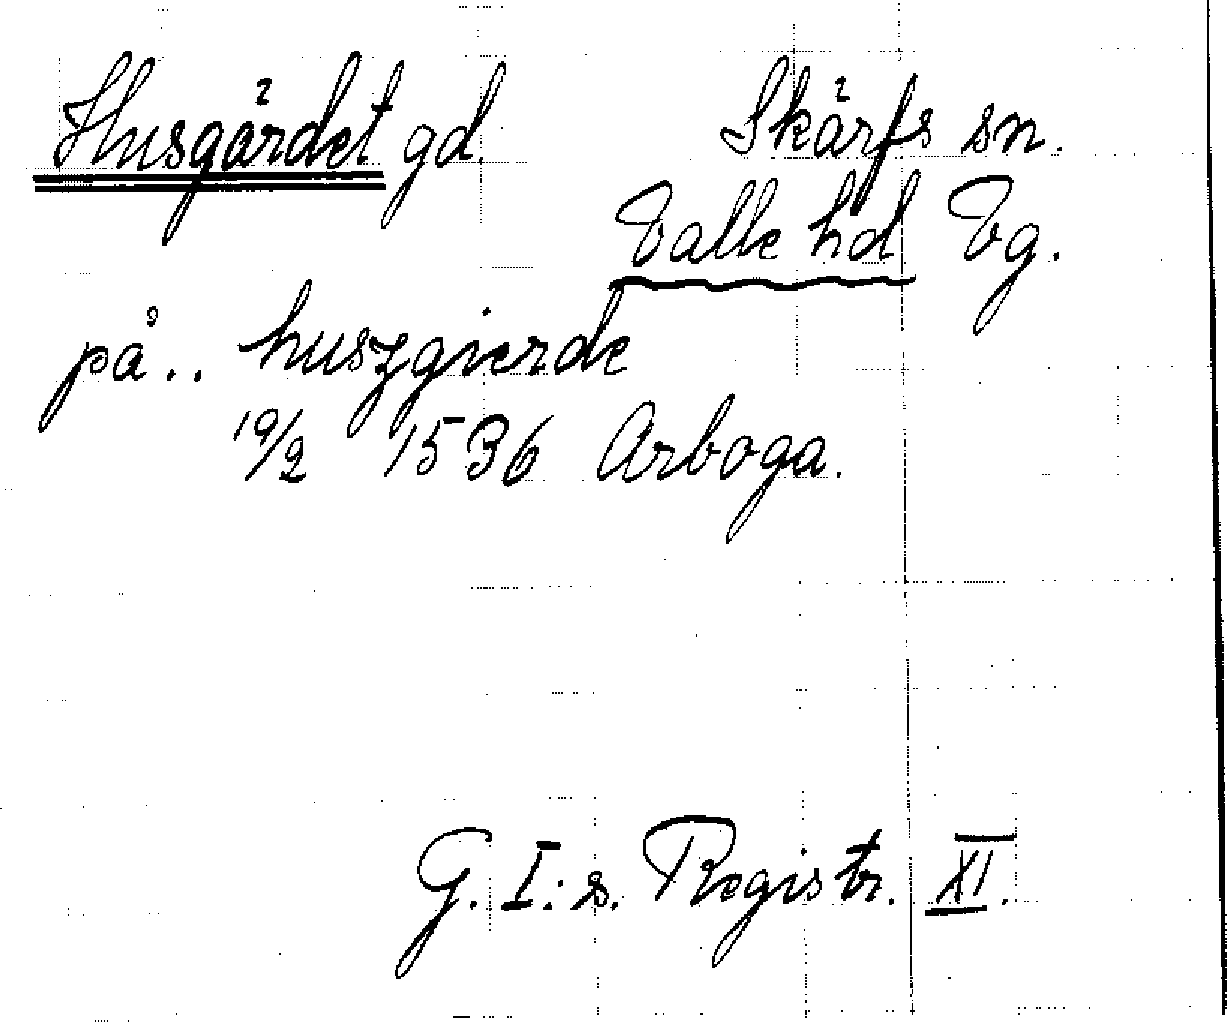 Husgärdet gd. Skärfs sn.
Valle hd Vg.
på.. huszgierde
19/2 1536 Arboga.
G. I:s. Registr. XI.